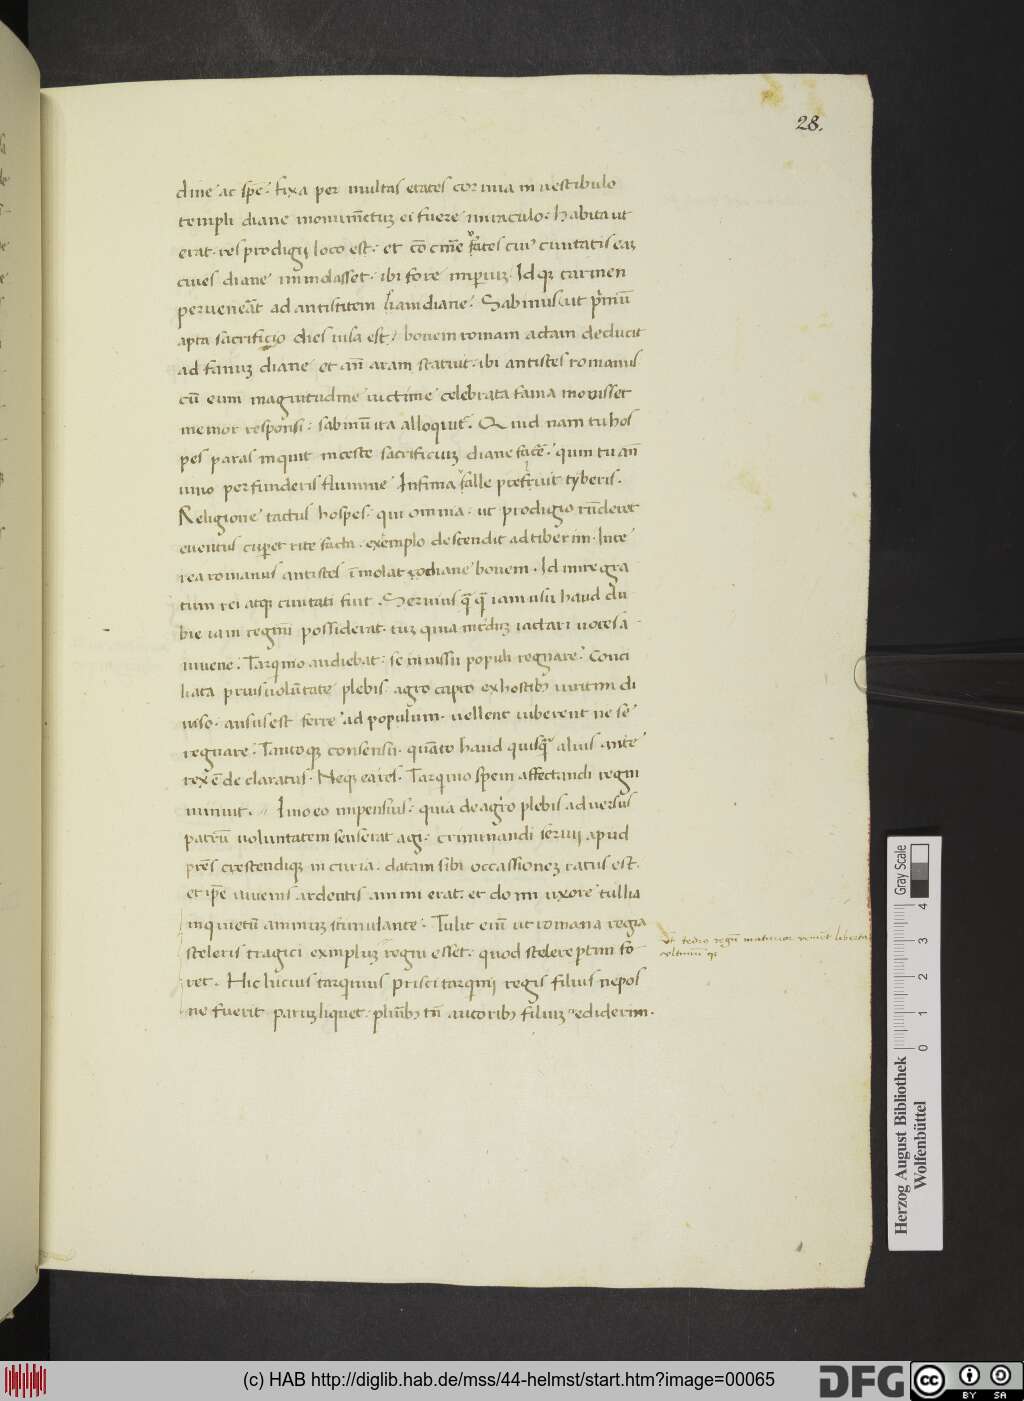 28.
dine ac spē. fixa per multas etates cornua in uestibulo
templi diane monumētuʒ ei fuere miraculo: habita ut
erat. res prodigij loco est: et cēcinē uates cui ciuitatis eaʒ
ciues diane inmolasset. ibi fore imperiuʒ. Idqꝫ carmen
peruenerāt ad antistitem diane. Sabinus ut primū
apta sacrificio dies uisa est, bouem romam actam deducit
ad fanuʒ diane et an̄ aram statuit. ibi antistes romanus
cū eum magnitudine uictime celebrata fama mouisset
memor responsi: sabinū ita alloquit̄. Quid nam tu hos
pes paras inquit inceste sacrificiuʒ diane facē. quin tu an̄
uiuo perfunderis flumine Infima ualle prefluit tyberis.
Religione tactus hospes: qui omnia. ut prodigio rn̄deret
euentus cuperet rite facta. extemplo descendit ad tiberim. Inte
rea romanus antistes īmolat diane bouem. Id mire gra
tum rei atqꝫ ciuitati fuit. Seruius q̄ q̄ iam usu haud du
bie iam regnū possiderat. tuʒ quia interduʒ iactari uoces a
iuuene. Tarquino audiebat: se in iussu populi regnare. Conci
liata prius uolūtate plebis. agro capto ex hostibꝫ uiritim di
uiso. ausus est ferre ad populum. uellent iuberent ne se
regnare. Tantoqꝫ consensu. quāto haud quisqꝫ alius ante
rex ē declaratus. Neqꝫ ea res. Tarquino spem affectandi regni
minuit. Imo eo impensius: quia de agro plebis aduersus
patrū uoluntatem senserat agi: criminandi seruij apud
prēs crescendiqꝫ in curia. datam sibi occassioneʒ ratus est.
et ip̄e iuuenis ardentis animi erat. et domi uxore tullia
inquietū animuʒ stimulante. Tulit enī ut romana regia
sceleris tragici exempluʒ regni esset: quod scelere ptum fo
ret. Hic lucius tarquinius prisci tarquinij regis filius nepos
ne fuerit paruʒ liquet. pluribꝫ tn̄ autoribꝫ filiuʒ ediderim.
ut tedio regū maturior ueniret liberta
ultimū qꝫ
Gray Scale
0 1 2 3 4
Herzog August Bibliothek
Wolfenbüttel
(c) HAB http://diglib.hab.de/mss/44-helmst/start.htm?image=00065
DFG
cc BY SA